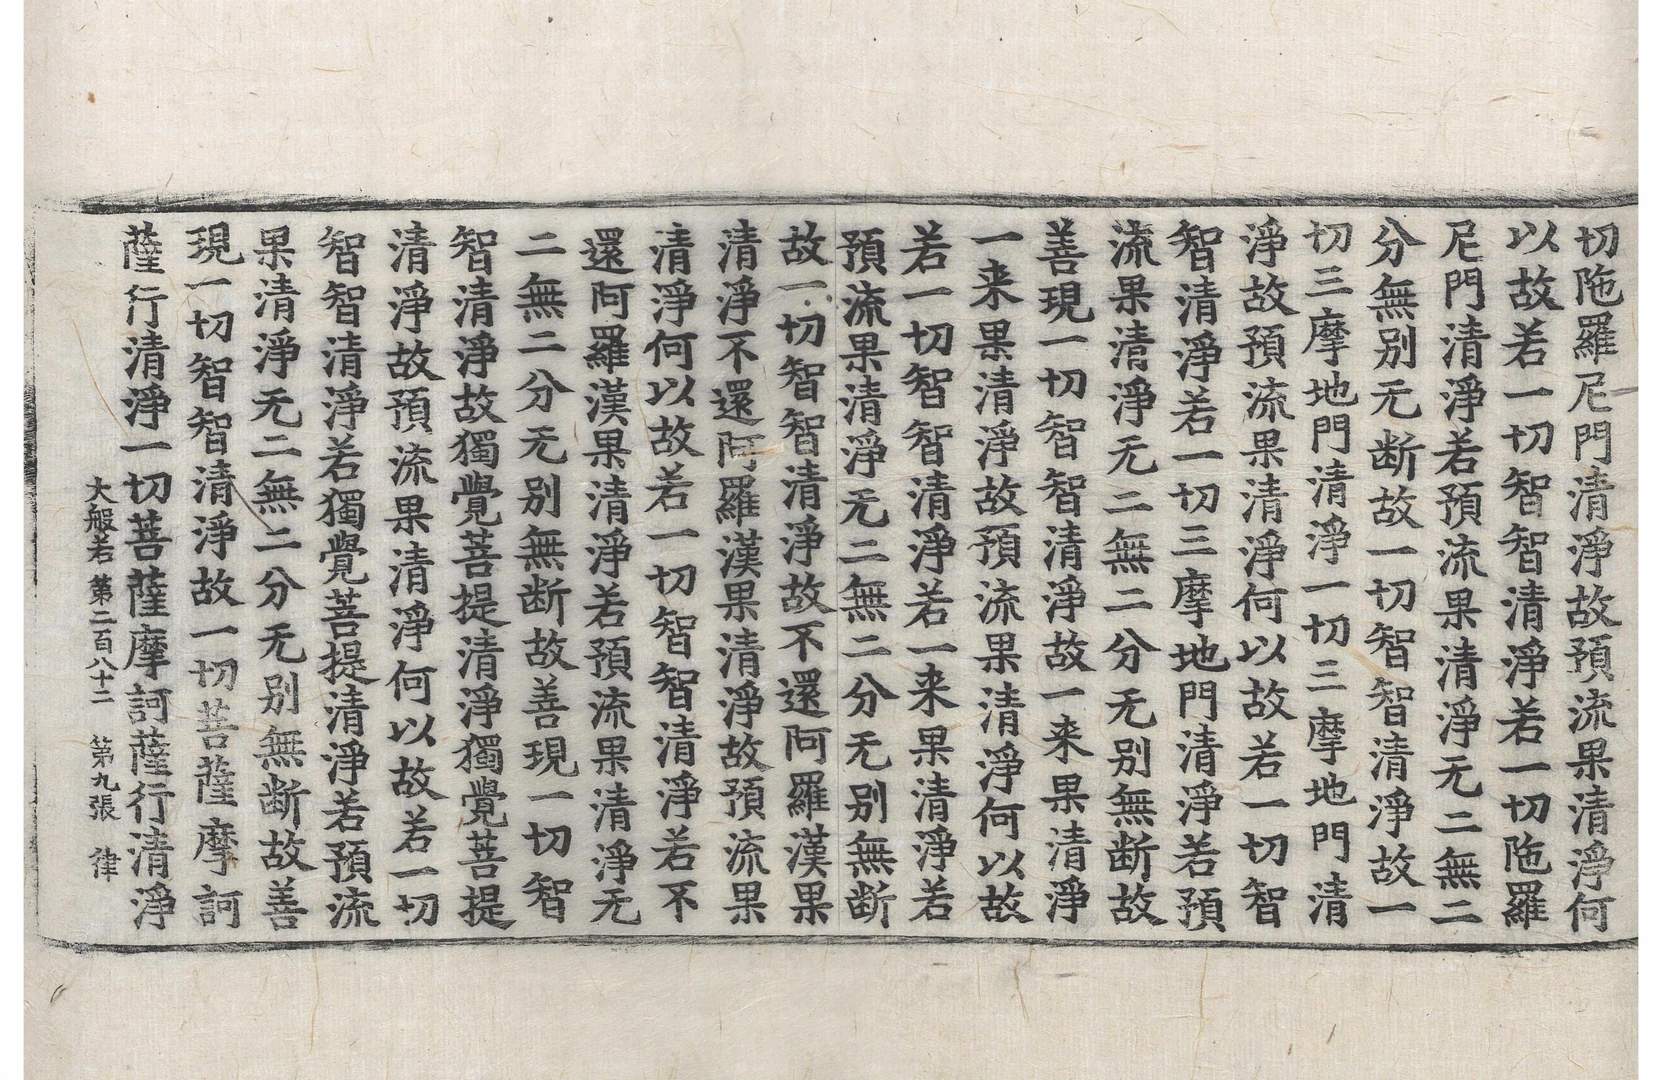 切陁羅尼門清淨故預流果清淨何
以故若一切智智清淨若一切陁羅
尼門清淨若預流果清淨无二無二
分無别无断故一切智智清淨故一
切三摩地門清淨一切三摩地門清
淨故預流果清淨何以故若一切智
智清淨若一切三摩地門清淨若預
流果清淨无二無二分无别無断故
善現一切智智清淨故一来果清淨
一来果清淨故預流果清淨何以故
若一切智智清淨若一来果清淨若
預流果清淨无二無二分无别無断
故一切智智清淨故不還阿羅漢果
清淨不還阿羅漢果清淨故預流果
清淨何以故若一切智智清淨若不
還阿羅漢果清淨若預流果清淨无
二無二分无别無断故善現一切智
智清淨故獨覺菩提清淨獨覺菩提
清淨故預流果清淨何以故若一切
智智清淨若獨覺菩提清淨若預流
果清淨无二無二分无别無断故善
現一切智智清淨故一切菩薩摩訶
薩行清淨一切菩薩摩訶薩行清淨
大般若第二百八十二 第九張 律